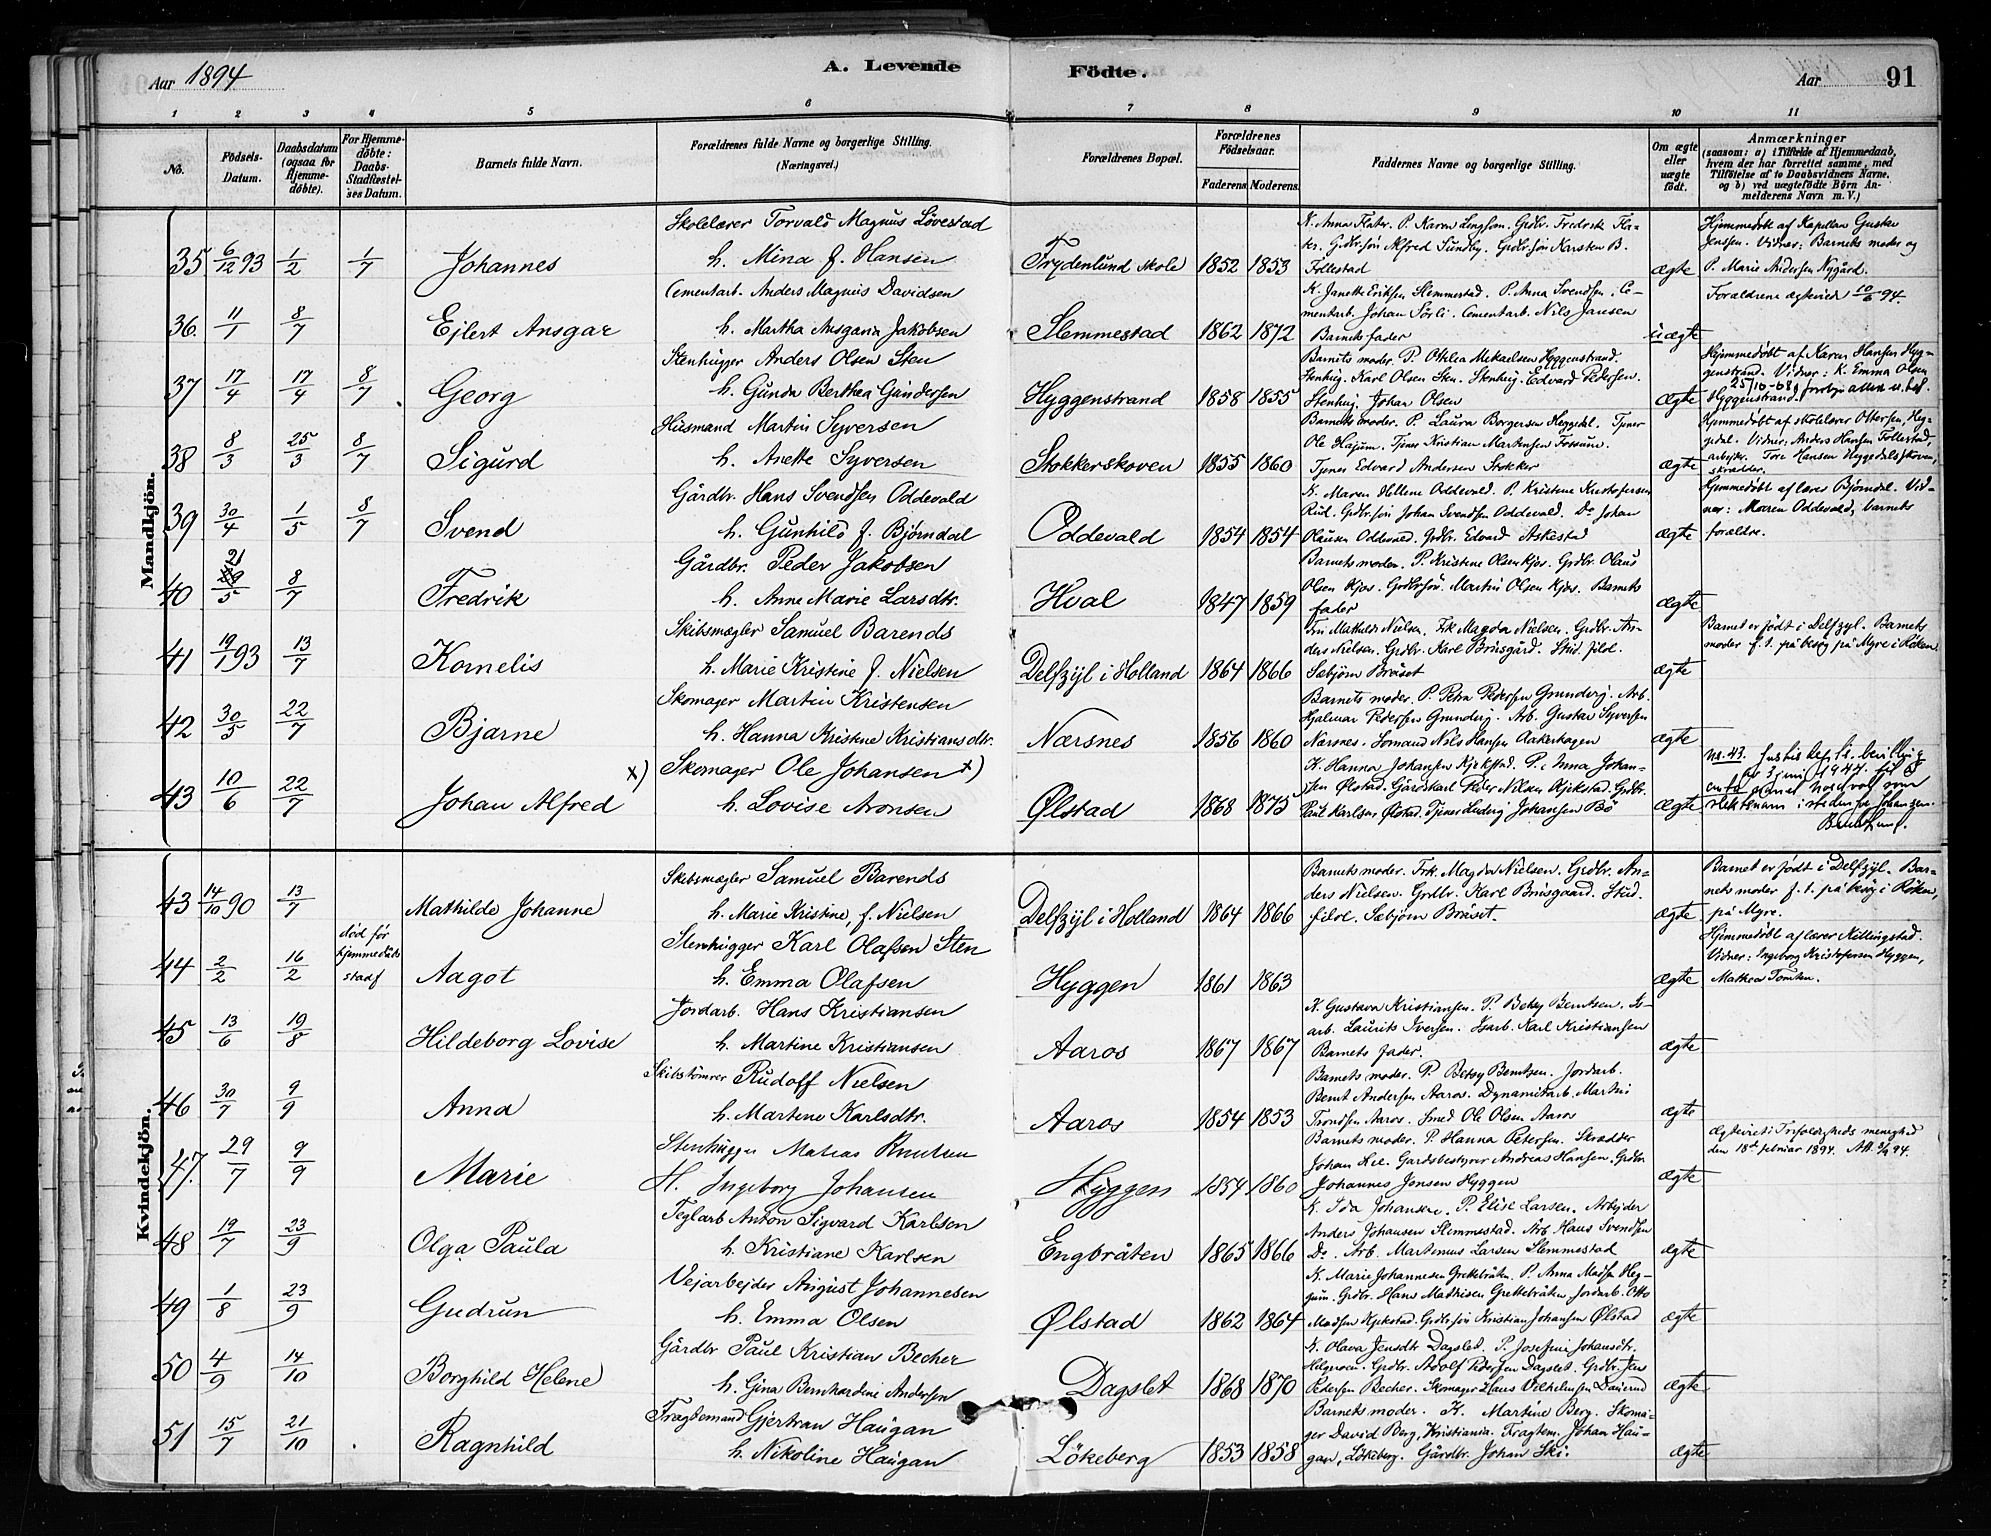 Aar 1894
A. Levende
Födte.
Aar
91
1 2 3 4 5 6 7 8 9 10 11
No.
Födsels-Datum.
Daabsdatum (ogsaa for Hjemme-döbte).
For Hjemme-döbte: Daabs-Stadfæstel-ses Datum.
Barnets fulde Navn.
Forældrenes fulde Navne og borgerlige Stilling. (Næringsvei.)
Forældrenes Bopæl.
Forældrenes Födselsaar.
Faderens. Moderens.
Faddernes Navne og borgerlige Stilling.
Om ægte eller uægte födt.
Anmærkninger
(saasom: a) i Tilfælde af Hjemmedaab, hvem der har forrettet samme, med Tilföielse af to Daabsvidners Navne. og b) ved uægtefödte Börn An-melderens Navn m. V.)
Mandkjön.
35 6/12 93 1/2 1/7 Johannes
Skolelærer Torvald Magnus Lövestad
h. Mina f. Hansen
Frydenlund skole 1852 1853
N. Anna Flater. P. Karen Lingsom. Grdbr. Fredrik Fla-
ter. Grdbr.sön Alfred Sundby. Grdbr.sön Karsten B.
Follestad
ægte
Hjemmedöbt af Kapellan Gustav
Jenssen. Vidner: Barnets moder og
P. Marie Andersen Nygård.
36. 11/1 8/7 Ejlert Ansgar
Cementarb. Anders Magnus Davidsen
h. Martha Ansgaria Jakobsen
Slemmestad 1862 1872
K. Janette Eriksen Slemmestad. P. Anna Svendsen. Ce-
mentarb. Johan Sörli. Cementarb. Nils Jansen
Barnets fader
uægte
Forældrene ægteviede 10/6 94.
37 17/4 17/4 8/7 Georg
Stenhugger Anders Olsen Sten
h. Gunda Berthea Gundersen
Hyggenstrand 1858 1855
Barnets moder. P. Otilia Mikaelsen Hyggenstrand.
Stenhug. Karl Olsen Sten. Stenhug. Edvard Pedersen.
Stenhug. Johan Olsen
ægte
Hjemmedöbt af Karen Hansen Hyg-
genstrand. Vidner: K. Emma Olsen
Hyggenstrand.
38 8/3 25/3 8/7 Sigurd
Husmand Martin Syversen
h. Anette Syversen
Stokkerskoven 1855 1860
Barnets moder. P. Laura Borgersen Heggedal. Tjener
Ole Hajum. Tjener Kristian Martinsen Forsum.
Tjener Edvard Andersen Stokker
ægte
Hjemmedöbt af skolelærer Ottersen, Heg-
gedal. Vidner: Anders Hansen Follestad,
arbejder. Tore Hansen Heggedalsskoven,
skrædder.
39 30/4 1/5 8/7 Svend
Gårdbr. Hans Svendsen Oddevald
h. Gunhild f. Björndal
Oddevald 1854 1854
K. Maren Hellene Oddevald. P. Kristine Kristofersen
Rud. Grdbr.sön Johan Svendsen Oddevald. Do Johan
Oddevald. Grdbr. Edvard Askestad
ægte
Hjemmedöbt af lærer Björndal. Vid-
ner: Maren Oddevald, barnets
forældre.
40 21/5 8/7 Fredrik
Gårdbr. Peder Jakobsen
h. Anne Marie Larsdtr.
Hval 1847 1859
Barnets moder. P. Kristine Olsen Kjos. Grdbr. Olaus
Olsen Kjos. Grdbr.sön Martin Olsen Kjos. Barnets
fader
ægte
41 19/1 93 13/7 Kornelis
Skibsmægler Samuel Barends
h. Marie Kristine f. Nielsen
Delfzyl i Holland 1864 1866
Fru Mathilde Nielsen. Frk Magda Nielsen. Grdbr. An-
ders Nielsen. Grdbr. Karl Brusgård. Stud. filol.
Sæbjörn Bråset
ægte
Barnet er födt i Delfzyl. Barnets
moder f. t. på besög på Myre i Röken.
42 30/5 22/7 Bjarne
Skomager Martin Kristensen
h. Hanna Kristine Kristiansdtr.
Nærsnes 1856 1860
Barnets moder. P. Petra Pedersen Grundvig. Arb.
Hjalmar Pedersen Grundvig. Arb. Gustav Syversen
Nærsnes. Sömand Nils Hansen Aakerhagen
ægte
43 10/6 22/7 Johan Alfred x)
Skomager Ole Johansen x)
h. Lovise Aronsen
Ølstad 1868 1875
K. Hanna Johansen Kjekstad. P. Anna Johan-
sen Ølstad. Gårdskarl Peder Nilsen Kjekstad. Grdbr.
Paul Karlsen Ølstad. Tjener Ludvig Johansen Bö
ægte
Nr. 43. Justisdep.ts. bevilling
av 3 juni 1947 til å
anta navnet Nordvol som
slektsnavn i stedenfor Johansen.
Kvindekjön.
43 14/10 90 13/7 Mathilde Johanne
Skibsmægler Samuel Barends
h. Marie Kristine, f. Nielsen
Delfzijl i Holland 1864 1866
Barnets moder. Frk. Magda Nielsen. Grdbr. An-
ders Nielsen. Grdbr. Karl Brusgaard. Stud.
filol. Sæbjörn Bråset.
ægte
Barnet er födt i Delfzyl. Bar-
nets moder f. t. på besög i Röken,
på Myre.
44 2/2 16/2 död för hjemmedåb stadf Aagot
Stenhugger Karl Olafsen Sten
h. Emma Olafsen
Hyggen 1861 1863
ægte
Hjemmedöbt af lærer Killingstad.
Vidner: Ingeborg Kristofersen Hyggen,
Mathea Tomten.
45 13/6 19/8 Hildeborg Lovise
Jordarb. Hans Kristiansen
h. Martine Kristiansen
Aaros 1867 1867
K. Gustava Kristiansen. P. Betsy Berntsen. Is-
arb. Laurits Iversen. Isarb. Karl Kristiansen
Barnets fader.
ægte
46 30/7 9/9 Anna
Skibstömrer Rudolf Nielsen
h. Martene Karlsdtr.
Aaros 1854 1853
Barnets moder. P. Betsy Berntsen. Jordarb.
Bernt Andersen Aaros. Dynamitarb. Martin
Trondsen Aaros. Smed Ole Olsen Aaros
ægte
47. 29/7 9/9 Marie
Stenhugger Matias Knutsen
H. Ingeborg Johansen
Hyggen 1854 1860
Barnets moder. P. Hanna Petersen. Skrædder
Johan Lie. Gardsbestyrer Andreas Hansen. Grdbr
Johannes Jensen Hyggen
ægte
Ægteviet i Trefoldigheds menighed
den 18de februar 1894.
48 19/7 23/9 Olga Paula
Teglarb Anton Sigvard Karlsen
h. Kristiane Karlsen
Engbråten 1865 1866
K. Ida Johansen. P. Elise Larsen. Arbejder
Anders Johansen Slemmestad. Arb. Hans Svendsen
Do. Arb. Martinius Larsen Slemmestad
ægte
49 1/8 23/9 Gudrun
Vejarbejder August Johannesen
h. Emma Olsen
Ølstad 1862 1864
K. Marie Johannesen Grettebråten. P. Anna Madsen Heg-
gum. Grdbr. Hans Mathisen Grettebråten. Jordarb. Otto
Madsen Kjekstad. Grdbr.sön Kristian Johansen Ølstad
ægte
50 4/9 14/10 Borghild Helene
Gårdbr Paul Kristian Becher
h. Gina Bernhardine Andersen
Dagslet 1868 1870
K. Olava Jensdtr Dagslet. P. Josefine Johansdtr.
Helgroen. Grdbr. Adolf Pedersen Dagslet. Grdbr. Jens
Pedersen Becher. Skomager Hans Vilhelmsen Daverud
ægte
51 15/7 21/10 Ragnhild
Fragtemand Gjertran Haugan
h. Nikoline Haugan
Lökeberg 1853 1858
Barnets moder. K. Martine Berg. Skoma-
ger David Berg, Kristiania. Fragtem. Johan Hau-
gan, Lökeberg. Gårdbr. Johan Ski.
ægte